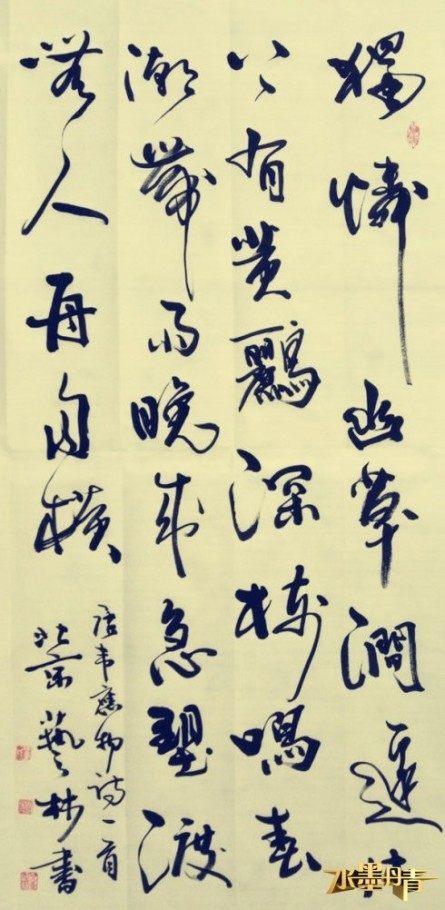 獨憐幽草澗邊生
上有黄鸝深樹鳴春
潮帶雨晚來急野渡
無人舟自横
唐韋應物詩一首
北京藝林書
水墨丹青